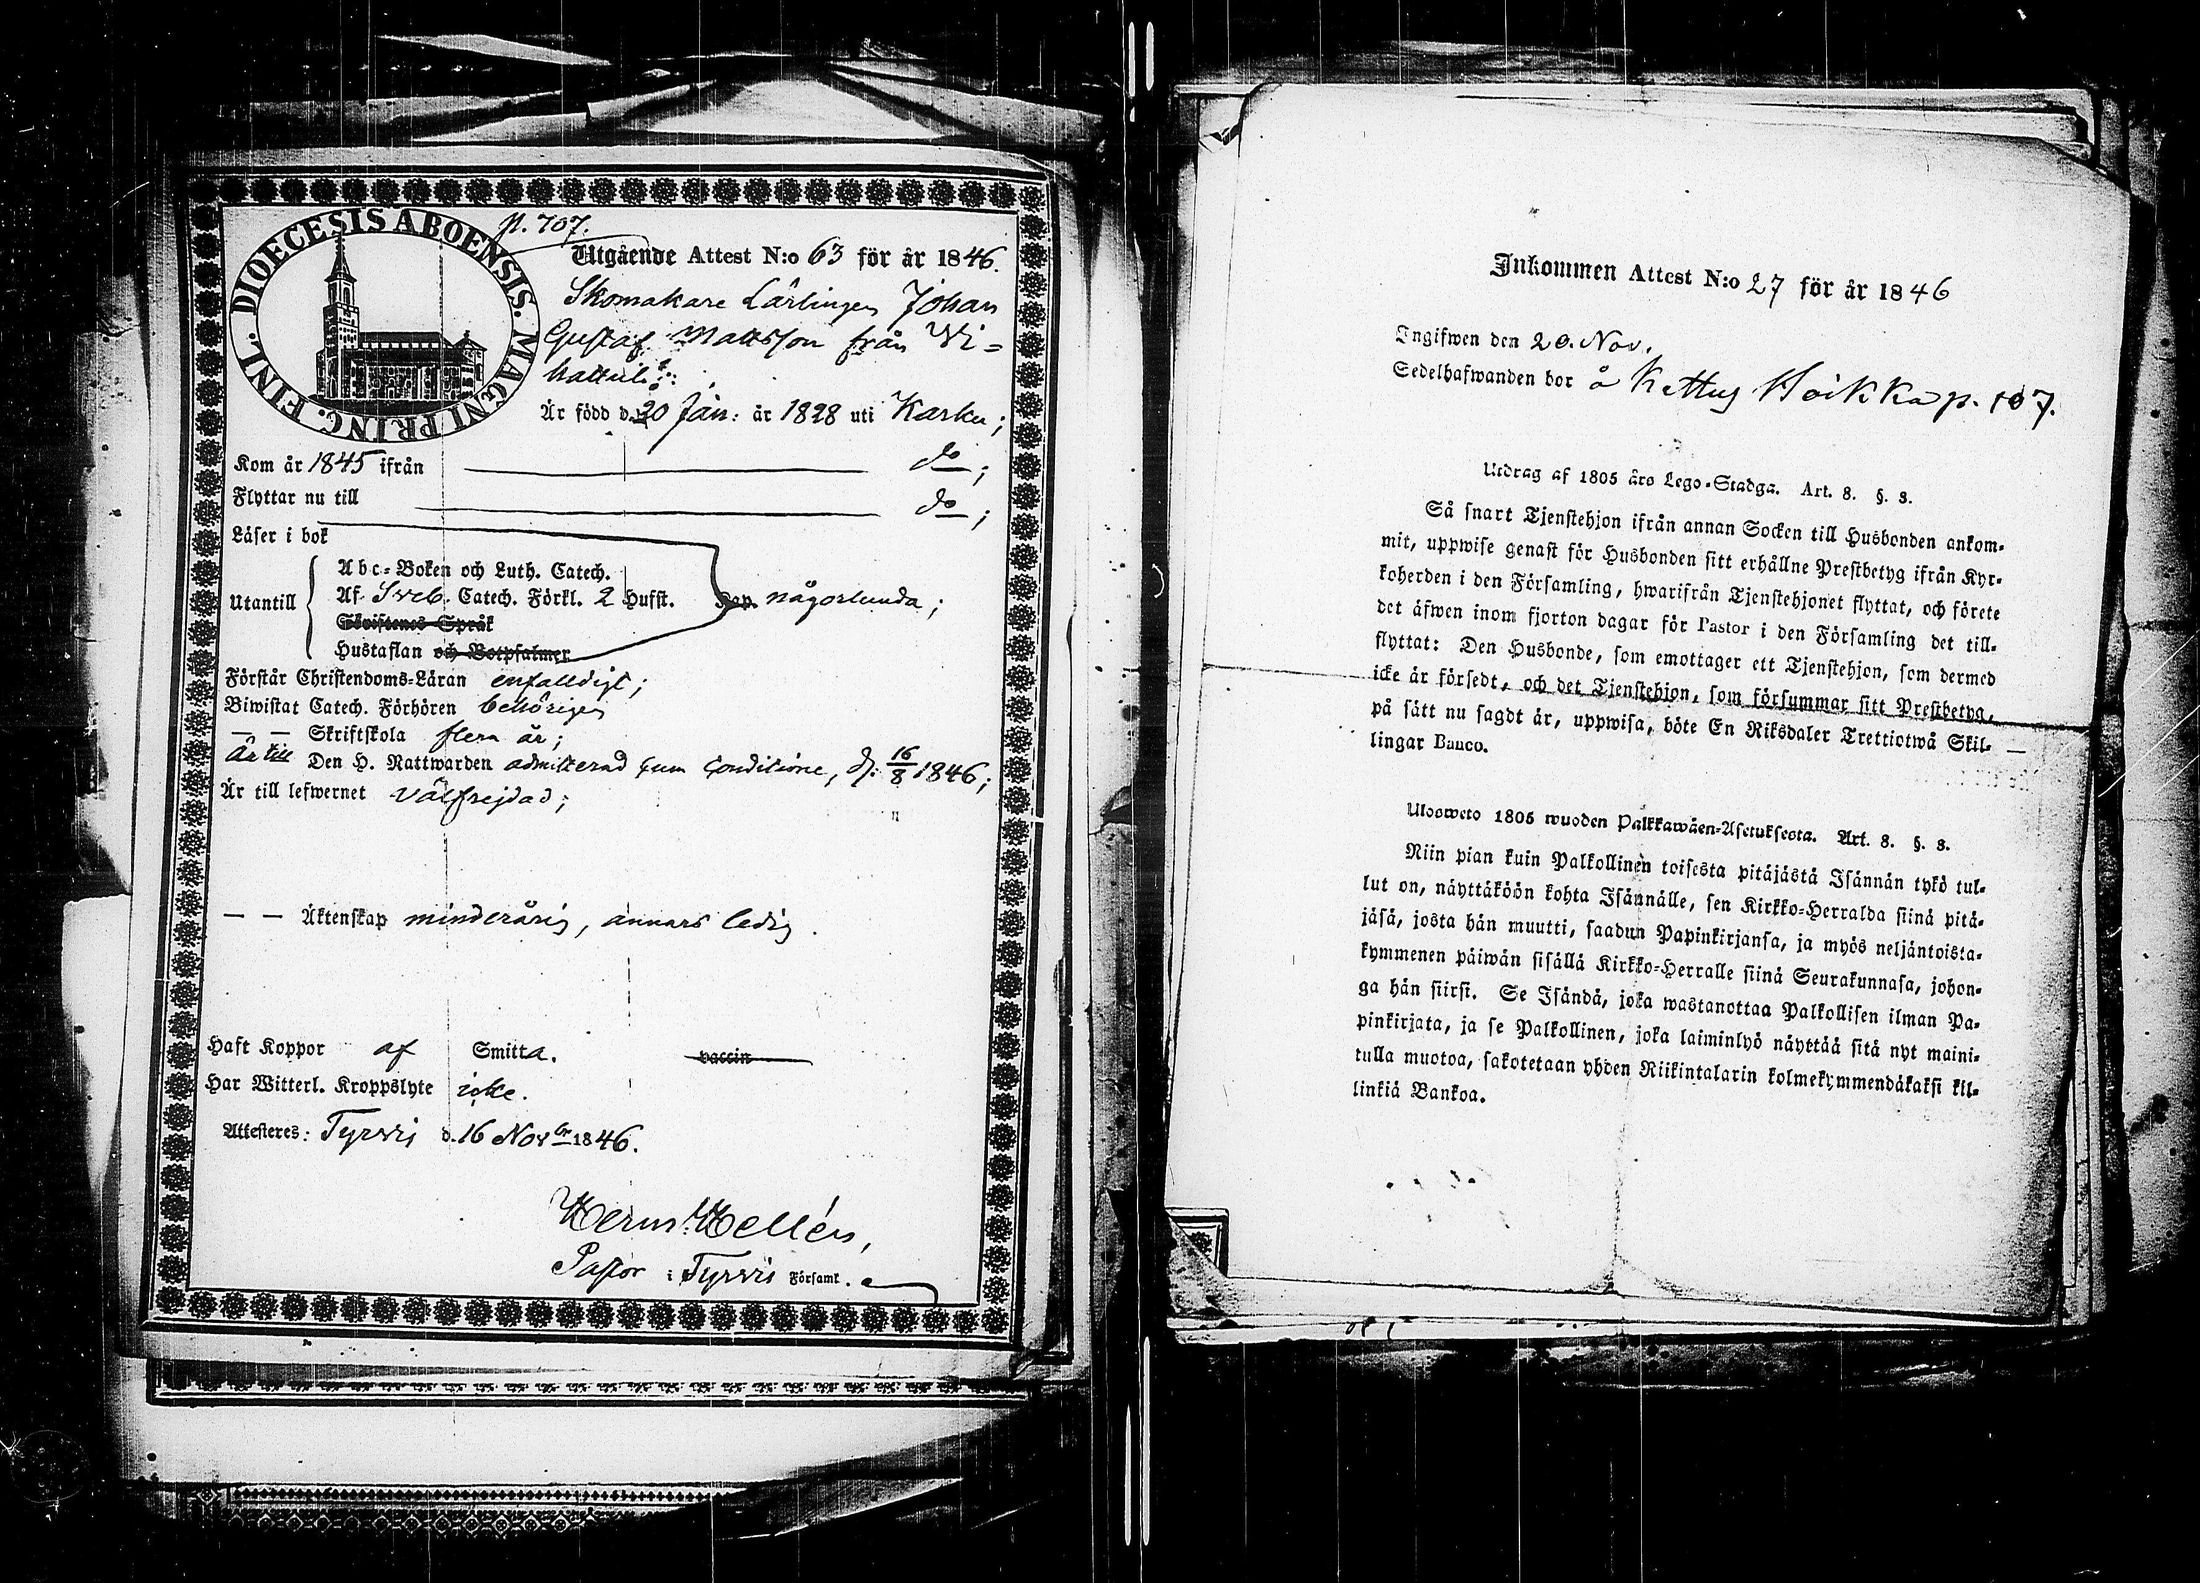 FINL. DIOECESIS ABOENSIS. MAGNI PRINC.
p. 707.
Utgående Attest N:o 63 för år 1846.
Skomakare Lärlingen Johan
Gustaf Mattsson från
Är född d. 20 Jan: år 1828 uti Karku;
Kom år 1845 ifrån do;
Flyttar nu till do;
Läser i bok
Utantill
Abc-Boken och Luth. Catech.
Af Sveb. Catech. Förkl. 2 Hufst. Kap. någorlunda;
Skriftenes Språk
Hustaflan och Botpsalmer
Förstår Christendoms-Läran enfalldigt;
Biwistat Catech. Förhören behörigen
— — Skriftskola flera år;
Är till Den H. Nattwarden admitterad cum conditione, d. 16/8 1846;
Är till lefwernet välfrejdad;
— — Äktenskap minderårig, annars ledig.
Haft Koppor af Smitta. vaccin
Har Witterl. Kroppslyte icke.
Attesteres: Tyrvis d. 16 Novbr 1846.
Herm. Hellén,
Pastor i Tyrvis Församl.
Inkommen Attest N:o 27 för år 1846
Ingifwen den 20. Nov.
Sedelhafwanden bor å Kettus Hoikka p. 107.
Utdrag af 1805 års Lego-Stadga. Art. 8. §. 3.
Så snart Tjenstehjon ifrån annan Socken till Husbonden ankom-
mit, uppwise genast för Husbonden sitt erhållne Prestbetyg ifrån Kyr-
koherden i den Församling, hwarifrån Tjenstehjonet flyttat, och förete
det äfwen inom fjorton dagar för Pastor i den Församling det till-
flyttat: Den Husbonde, som emottager ett Tjenstehjon, som dermed
icke är försedt, och det Tjenstehjon, som försummar sitt Prestbetyg,
på sätt nu sagdt är, uppwisa, böte En Riksdaler Trettiotwå Skil-
lingar Banco.
Ulosweto 1805 wuoden Palkkawäen-Asetuksesta. Art. 8. §. 3.
Niin pian kuin Palkollinen toisesta pitäjästä Isännän tykö tul-
lut on, näyttäköön kohta Isännälle, sen Kirkko-Herralda siinä pitä-
jäsä, josta hän muutti, saadun Papinkirjansa, ja myös neljäntoista-
kymmenen päiwän sisällä Kirkko-Herralle siinä Seurakunnasa, johon-
ga hän siirsi. Se Isändä, joka wastanottaa Palkollisen ilman Pa-
pinkirjata, ja se Palkollinen, joka laiminlyö näyttää sitä nyt maini-
tulla muotoa, sakotetaan yhden Riikintalarin kolmekymmendäkaksi kil-
linkiä Bankoa.